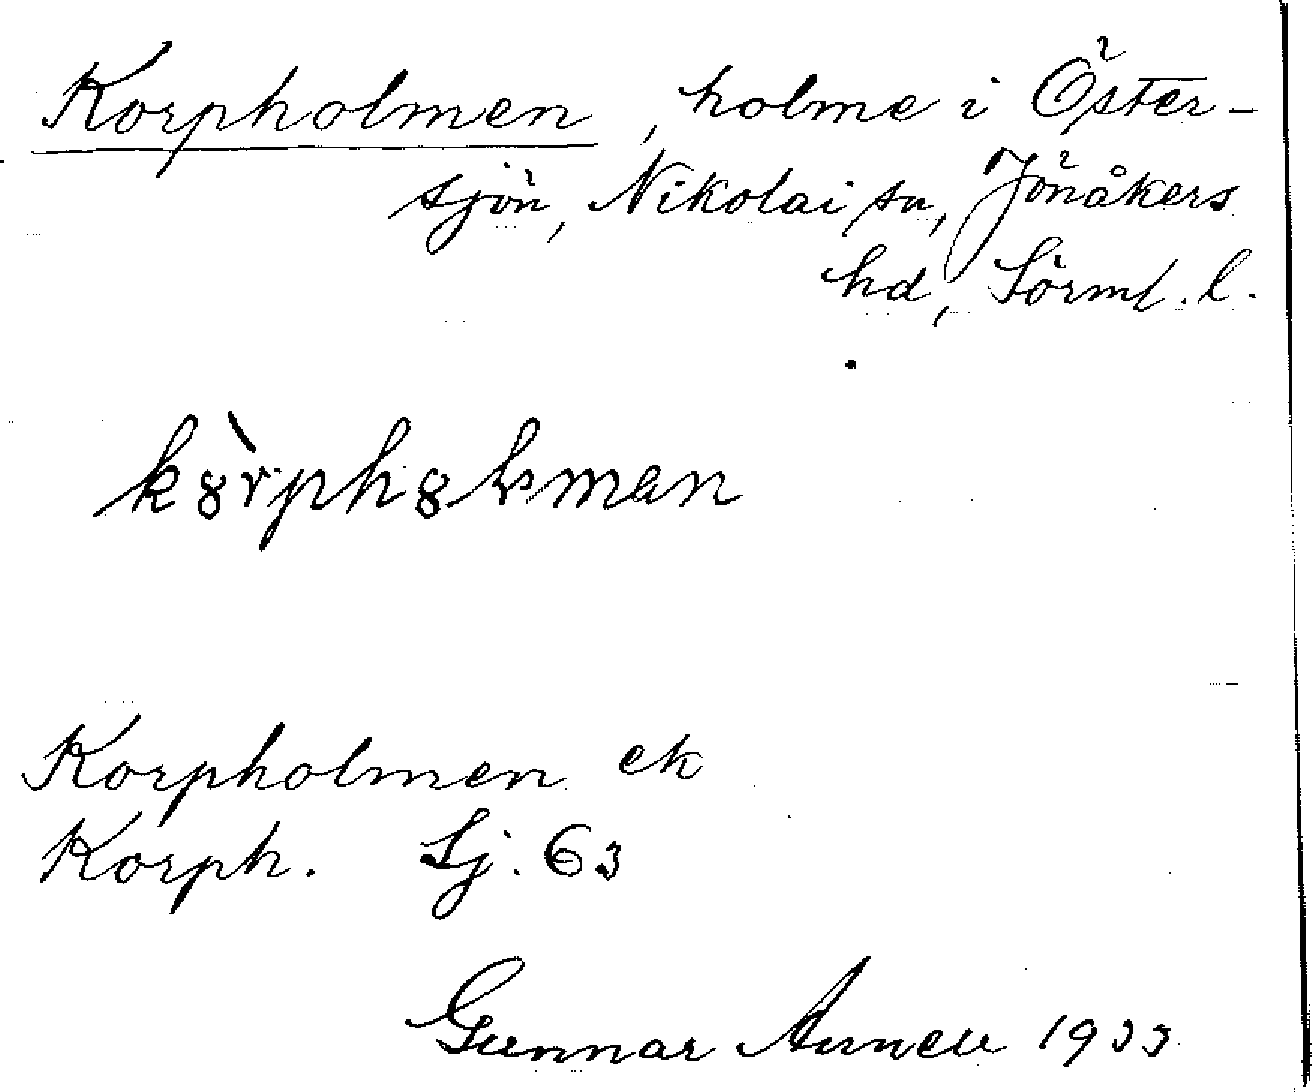 Korpholmen, holme i Öster-
sjön, Nikolai sn, Jönåkers
hd, Sörml. l.
kȣ̀rphȣlmən
Korpholmen ek
Korph. Sj. 63
Gunnar 1933